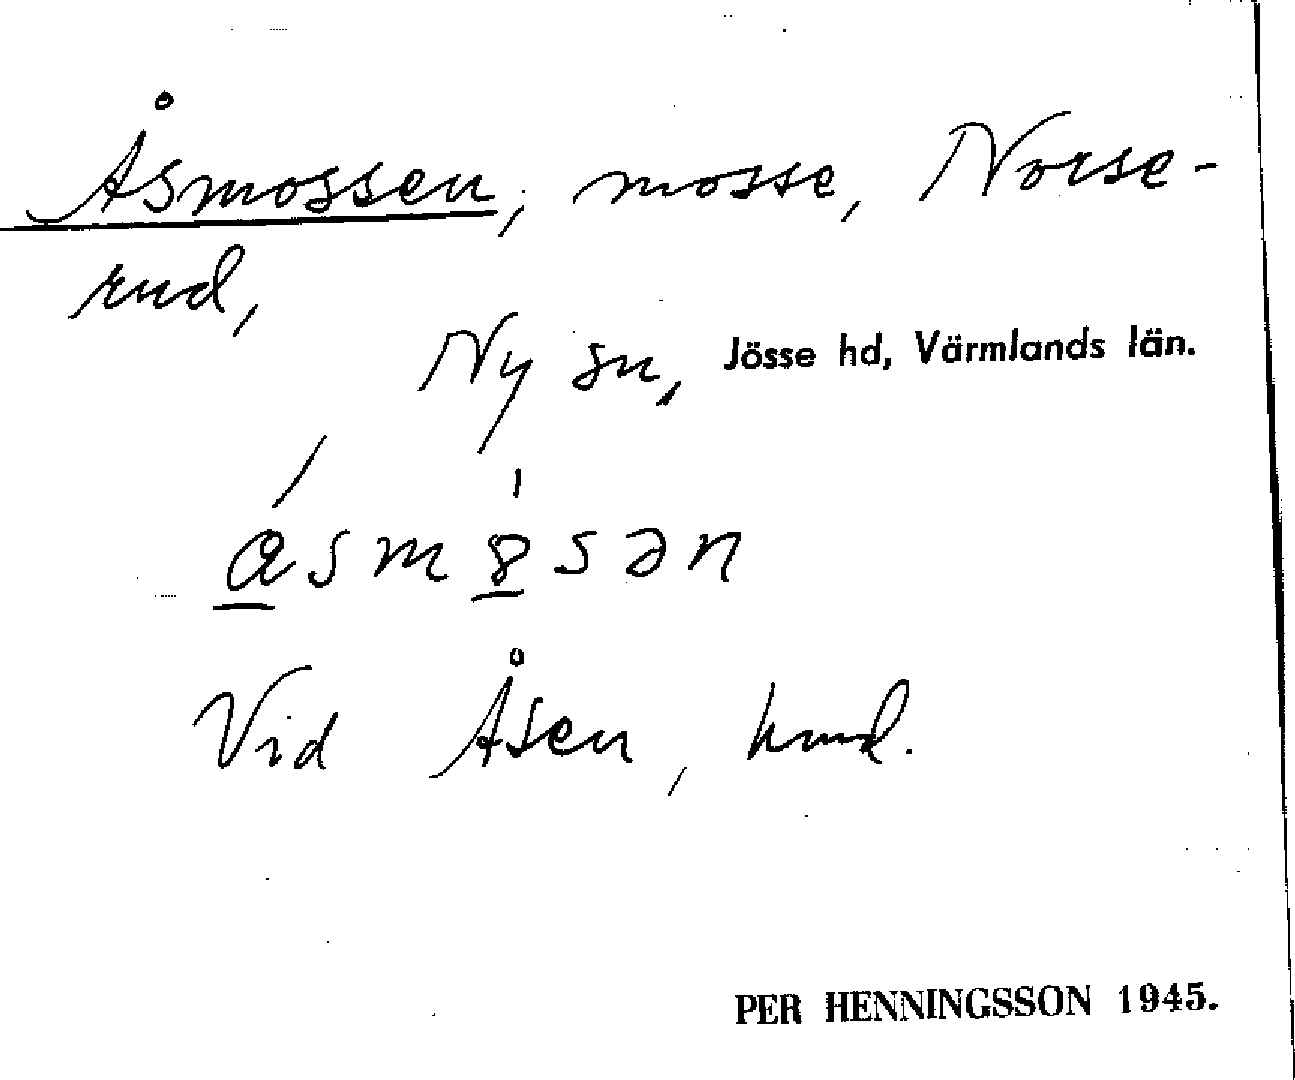 Åsmossen, mosse, Norse-
rud,
Ny sn, Jösse hd, Värmlands län.
Vid Åsen, hmd.
PER HENNINGSSON 1945.